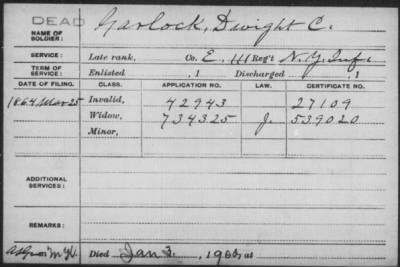 DEAD
NAME OF SOLDIER: Garlock, Dwight C.
SERVICE: Late rank, Co. E, 111 Reg't N.Y. Inf.
TERM OF SERVICE: Enlisted , 1 Discharged , 1
DATE OF FILING. CLASS. APPLICATION NO. LAW. CERTIFICATE NO.
1864 Mar 25 Invalid, 42943 27109
Widow, 734325 J. 539020
Minor,
ADDITIONAL SERVICES:
REMARKS:
Died Jan 3, at